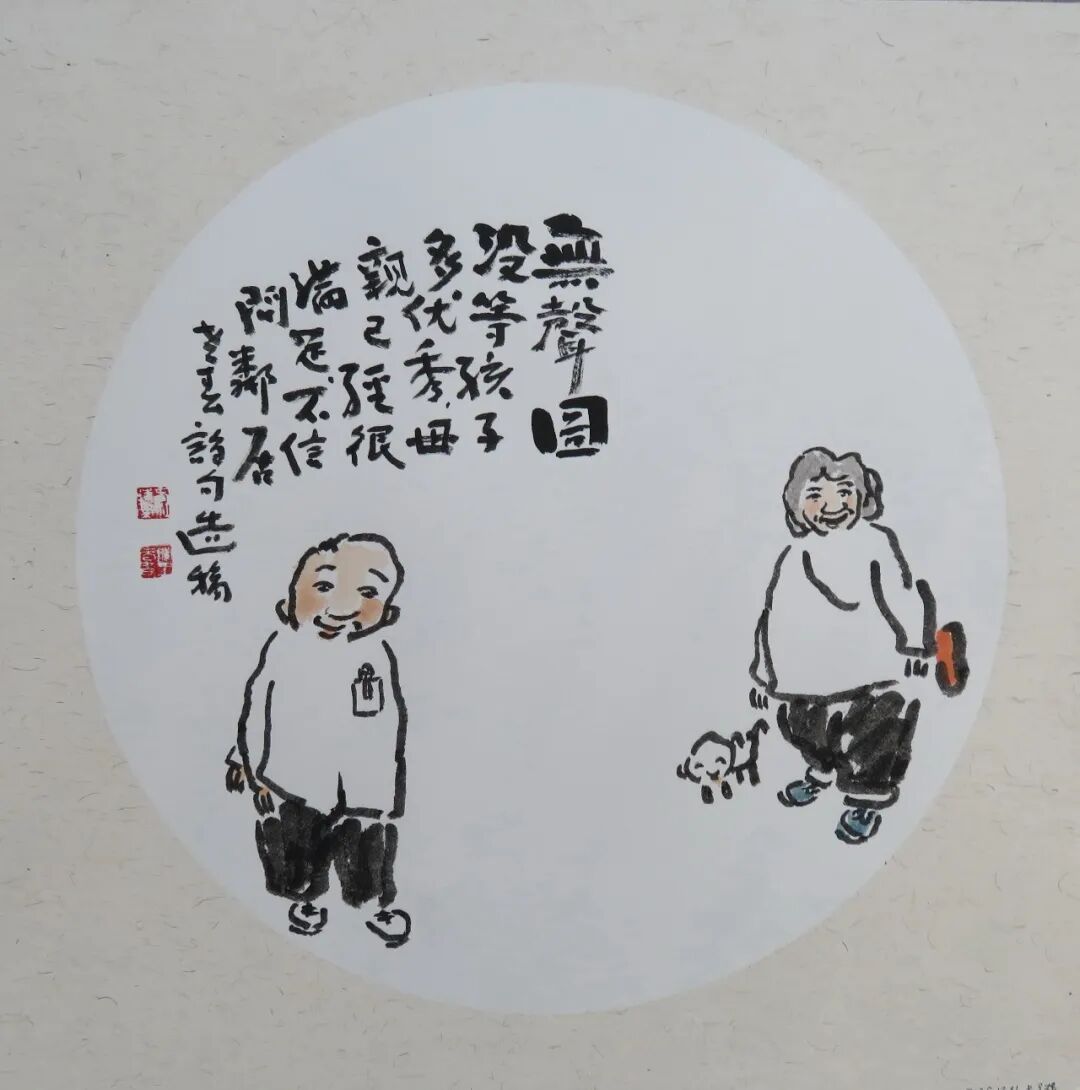 無聲圖
没等孩子
多优秀，母
親已經很
滿足不信
問鄰居
詩句